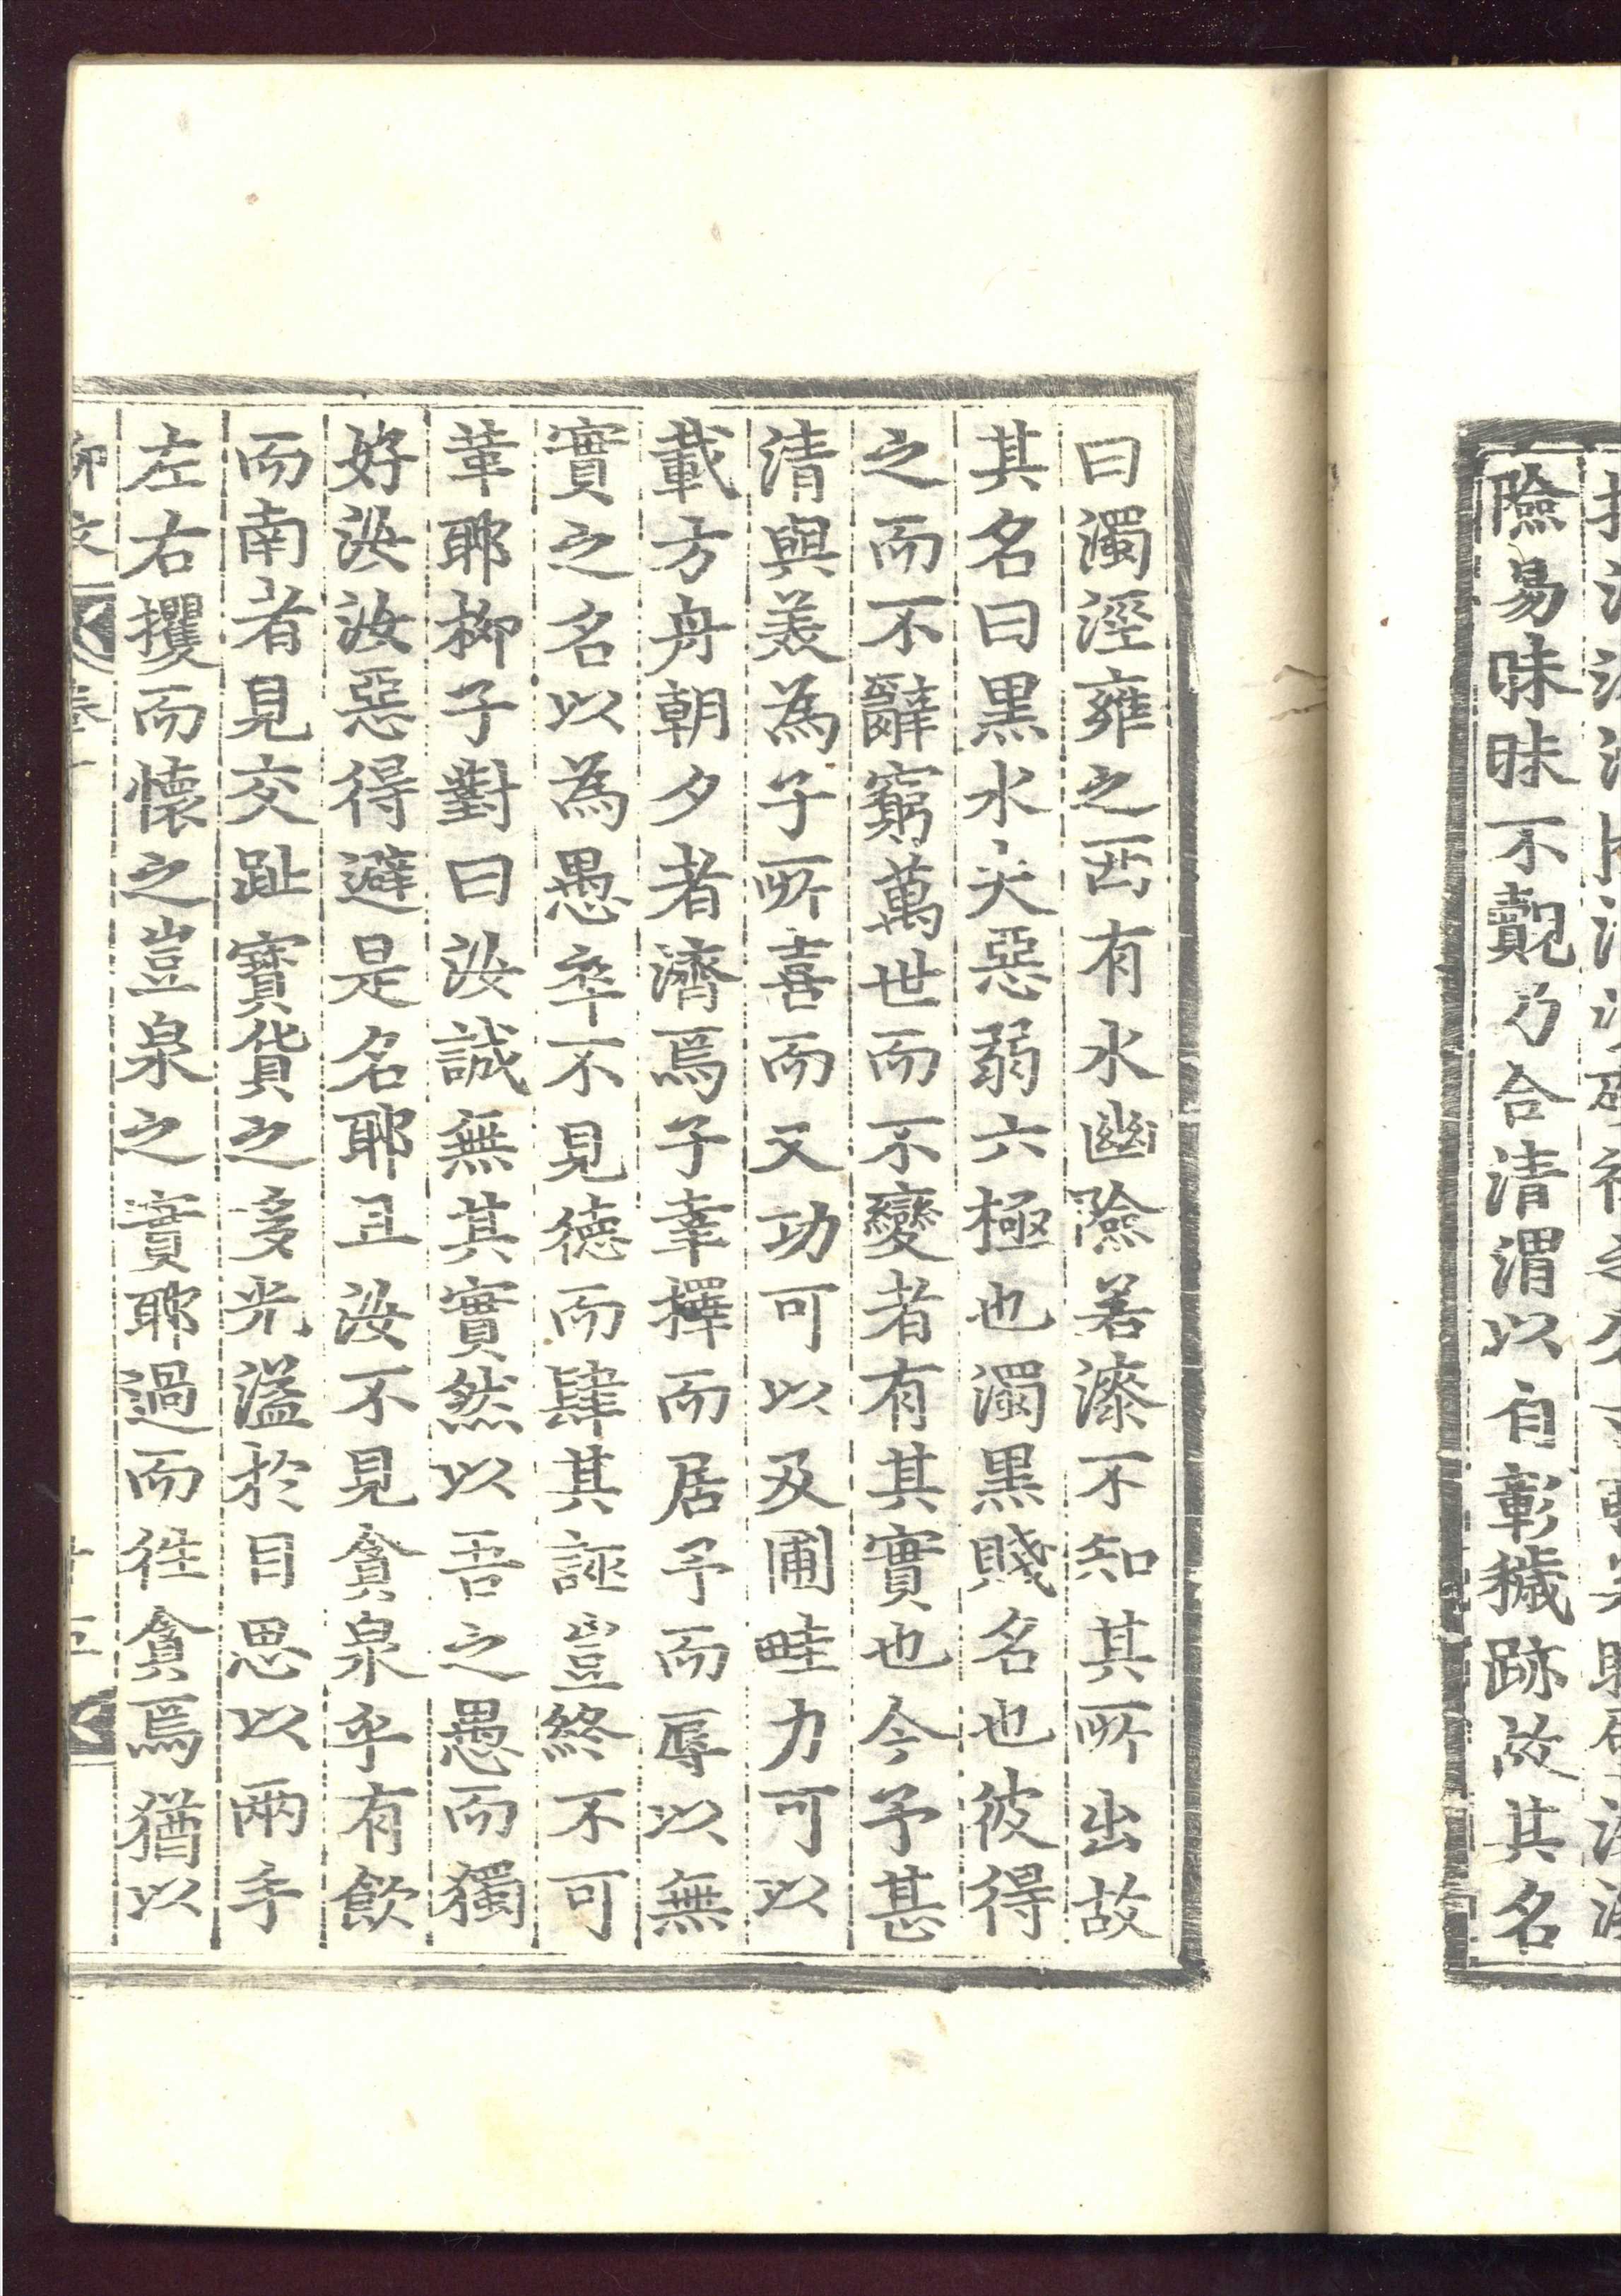 險易昧昧不覿乃合清渭以自彰穢跡故其名
曰濁涇雍之西有水幽險若漆不知其所出故
其名曰黑水夫惡弱六極也濁黑賤名也彼得
之而不辭窮萬世而不變者有其實也今予甚
清與美為子所喜而又功可以及圃畦力可以
載方舟朝夕者濟焉子幸擇而居予而辱以無
實之名以為愚卒不見德而肆其誣豈終不可
革耶柳子對曰汝誠無其實然以吾之愚而獨
好汝汝惡得避是名耶且汝不見貪泉乎有飲
而南者見交趾寶貨之多光溢於目思以兩手
左右攫而懷之豈泉之實耶過而往貪焉猶以